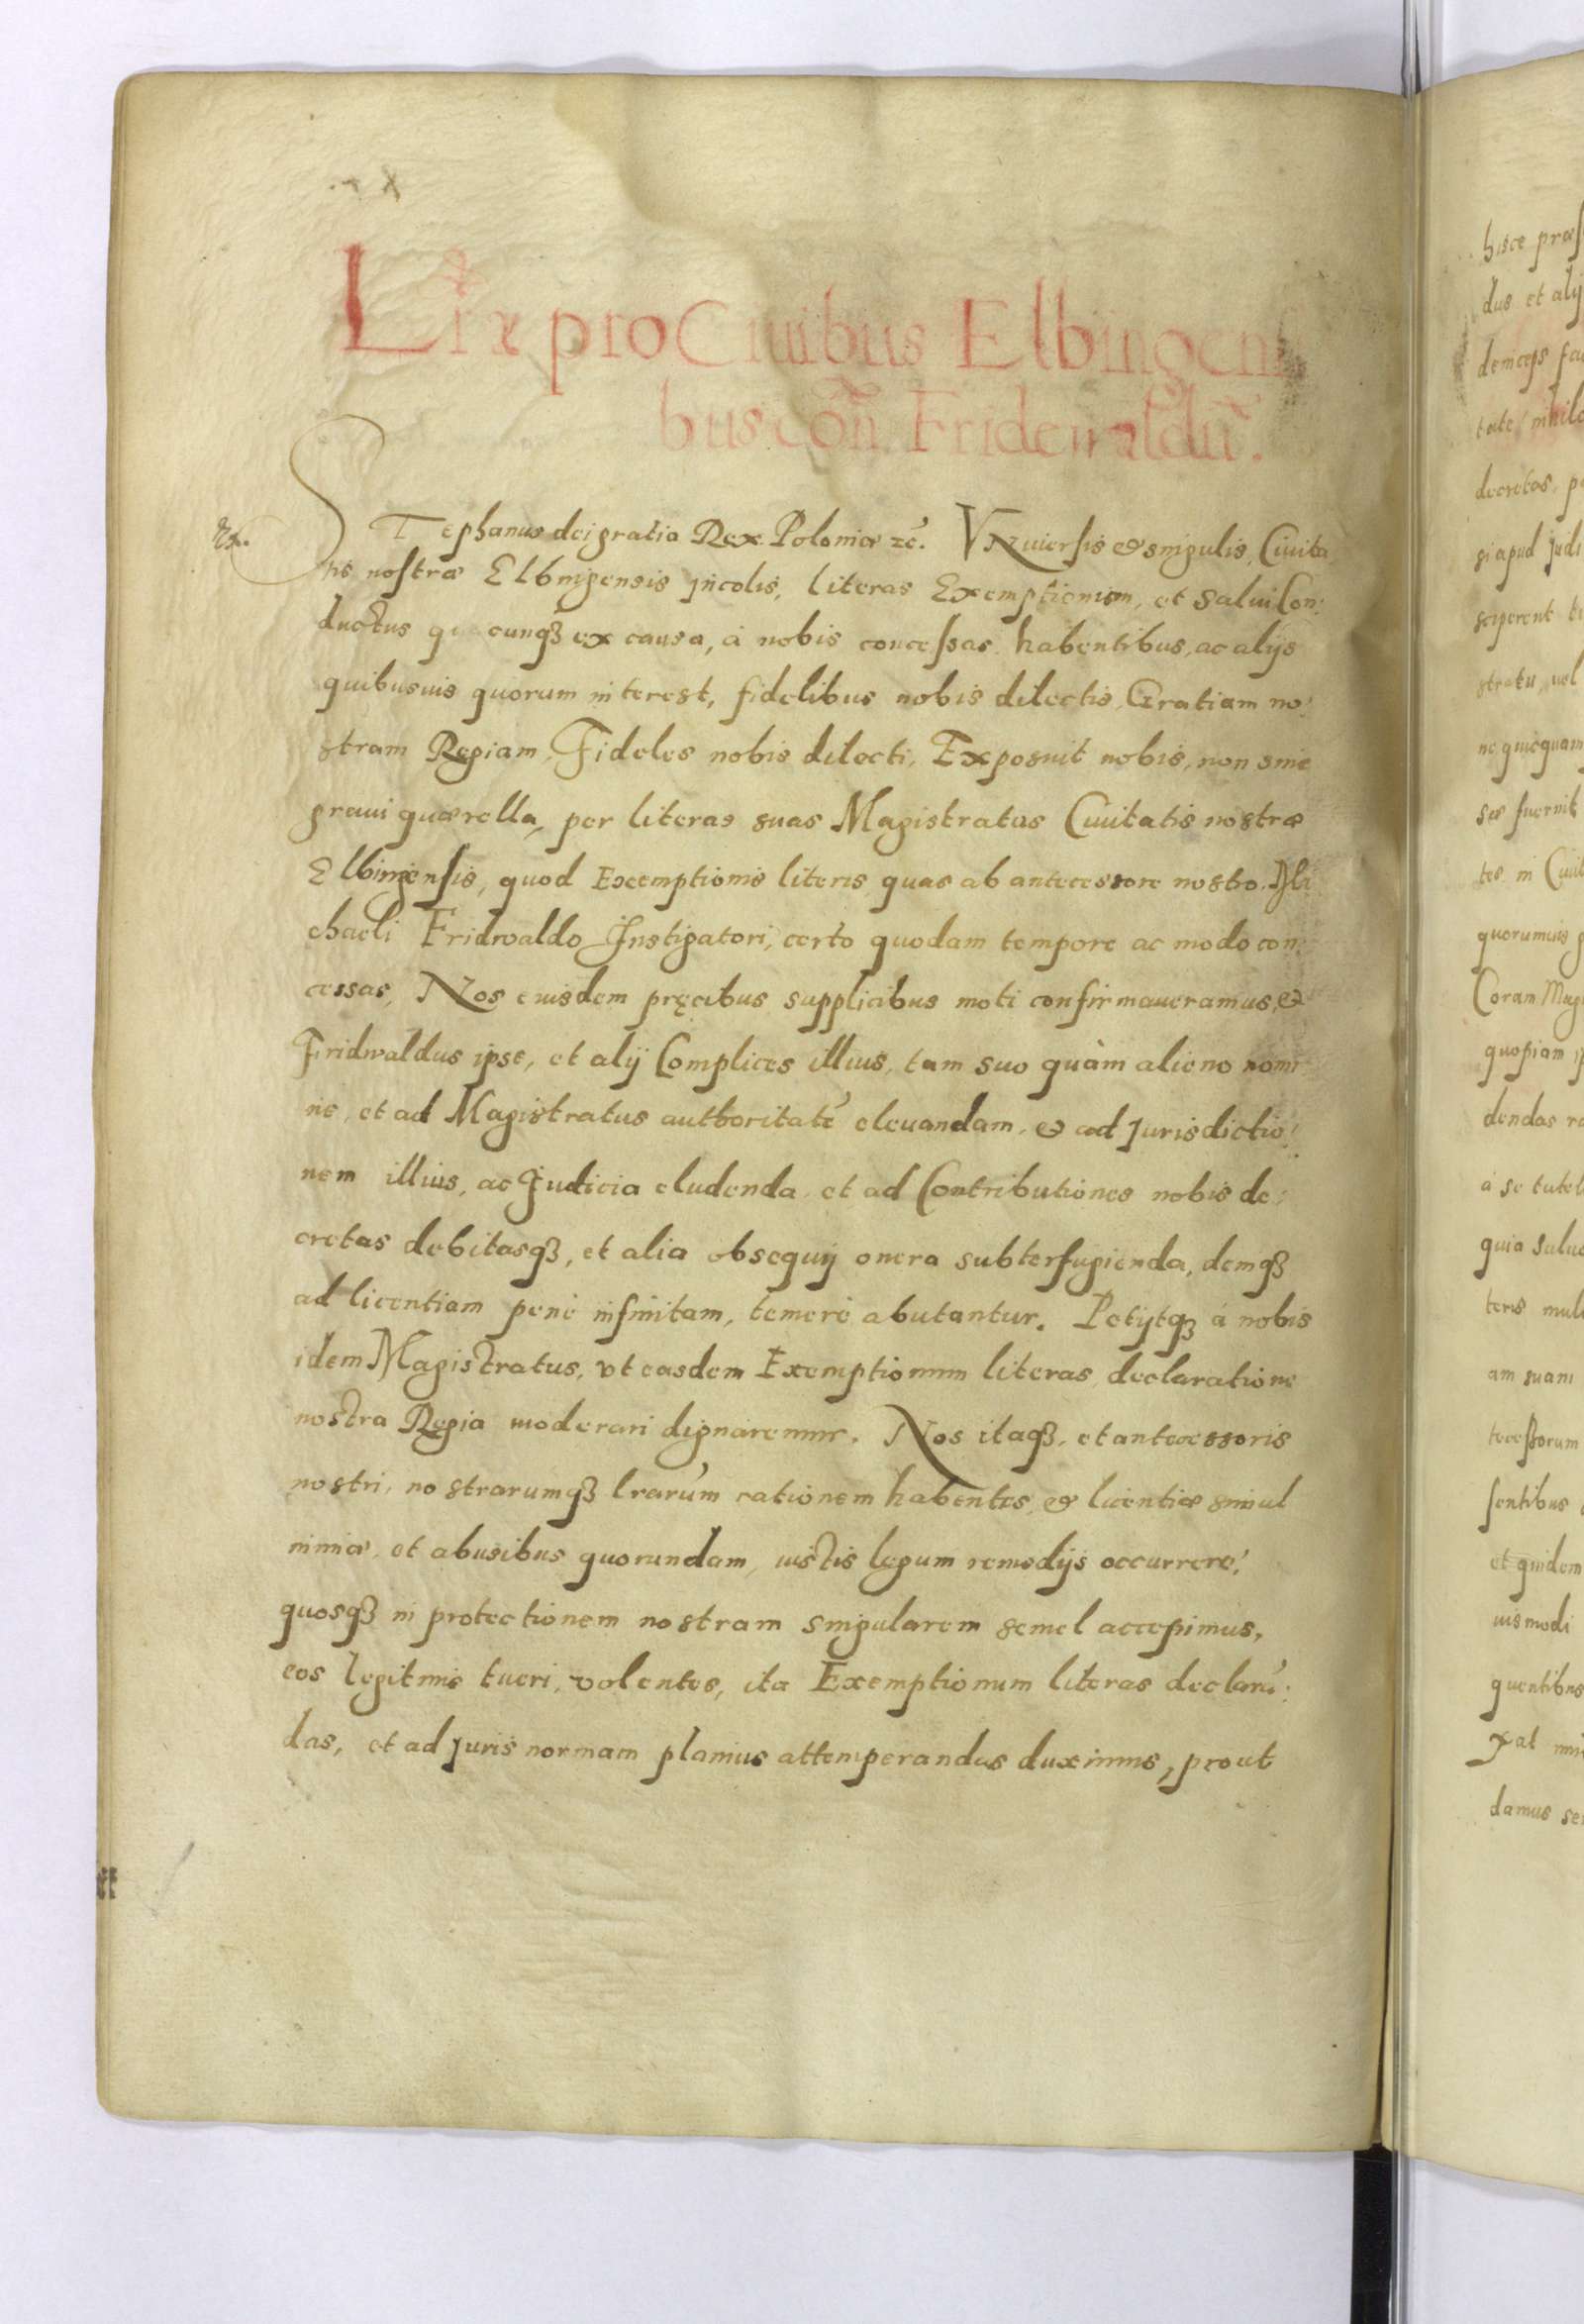 Lræ pro Ciuibus Elbingen
bus con Frideiwaldũ.
STephanus dei gratia Rex Poloniæ ꝛc̃. VNiuersis & singulis, Ciuita
tis nostræ Elbingensis Jncolis, literas Exemptionum, et Salui Con:
ductus quacunqȝ ex causa, á nobis concessas habentibus, ac alijs
quibusuis quorum interest, fidelibus nobis dilectis, Gratiam no:
stram Regiam, Fideles nobis dilecti, Exposuit nobis, non sine
graui quærella, per literas suas Magistratus Ciuitatis nostræ
Elbingensis, quod Exemptionis literis quas ab antecessore nostro Mi
chaeli Fridwaldo Jnstigatori, certo quodam tempore ac modo con:
cessas, Nos eiusdem pręcibus supplicibus moti confirmaueramus, &
Fridwaldus ipse, et alij Complices illius, tam suo quàm alieno nomi
ne, et ad Magistratus authoritatẽ eleuandam, & ad Jurisdictio:
nem illius, ac Judicia eludenda, et ad Contributiones nobis de:
cretas debitasqȝ, et alia obsequij onera subterfugienda, deniqȝ
ad licentiam penè infinitam, temerè abutantur. Petijtqȝ á nobis
idem Magistratus, vt easdem Exemptionum literas, declaratione
nostra Regia moderari dignaremur. Nos itaqȝ, et antecessoris
nostri, nostrarumqȝ lrarum rationem habentes, & licentiæ simul
nimiæ, et abusibus quorundam, iustis legum remedijs occurrere,
quosqȝ in protectionem nostram singularem semel accepimus,
eos legitimis tueri, volentes, ita Exemptionum literas declarã:
das, et ad Juris normam planius attemperandas duximus, prout